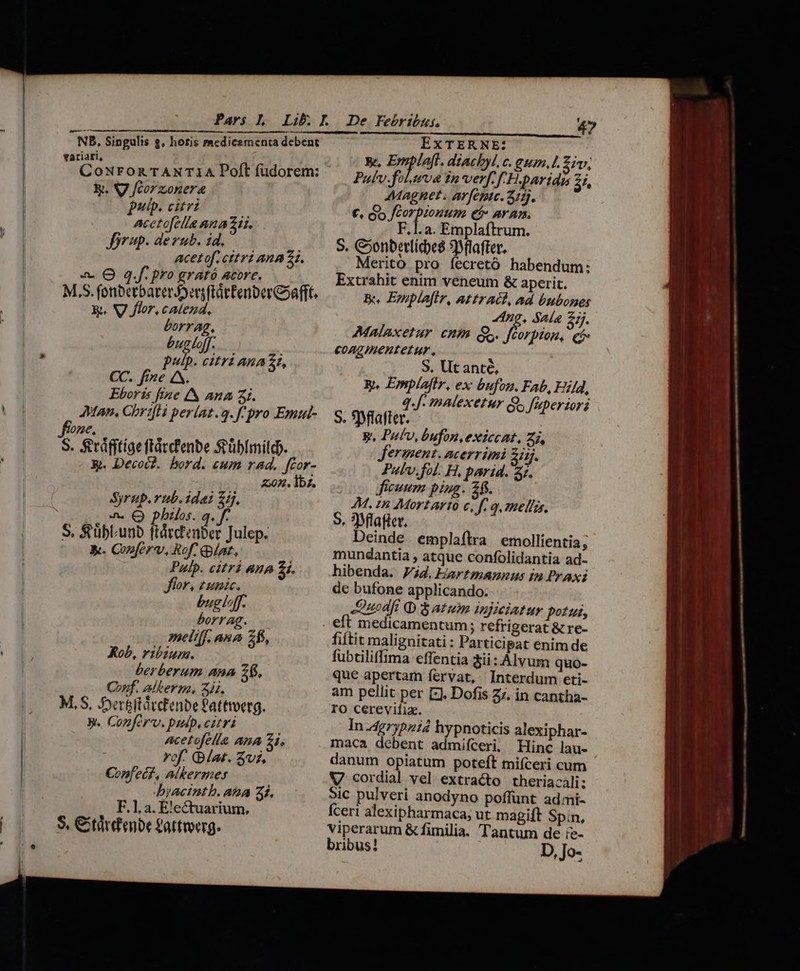 Pars I. Lib. I. De Febribus. 47
NB. Singulis 8. horis medicamenta debent
variari.
CONFORTANTIA Poſt ſudorem:
℞. 🜄 ſcorzoneræ
pulp. citri
acetoſellæ ana ℥ii.
ſyrup. de rub. id.
acetoſ. citri ana ℥i.
q. ſ. pro grató acore.
M.S. ſonderbarer Hertzſtärckender Safft.
℞. 🜄 flor. calend.
borrag.
bugloſſ.
pulp. citri ana ℥i,
CC. ſine 🜂.
Eboris ſine 🜂 ana ʒi.
Man. Chriſti perlat. q. ſ. pro Emul-
ſione.
S. Kräfftige ſtärckende Kühlmilch.
℞. Decoct. hord. cum rad. ſcor-
zon. ℔i.
Syrup. rub. idæi ℥ij.
philos. q. ſ.
S. Kühl-und ſtärckender Julep.
℞. Conſerv. Roſ. lat.
Pulp. citri ana ℥i.
flor. tunic.
bugloſſ.
borrag.
meliſſ. ana ℥ß,
Rob. ribium.
berberum ana ℥ß,
Conf. alkerm. ʒii.
M.S. Hertzſtärckende Lattwerg.
℞. Conſerv. pulp. citri
acetoſellæ ana ℥i.
roſ. lat. ʒvi.
Confect. alkermes
hyacinth. ana ʒi.
F. l. a. Electuarium.
S. Stärckende Lattwerg.
EXTERNE:
℞. Emplaſt. diachyl. c. gum. l. ℥iv.
Pulv. fol. uvæ in verſ. ſ. H. paridis ℥i,
Magnet. arſenic. ʒiij.
c. ſcorpionum & aran.
F. l. a. Emplaſtrum.
S. Sonderliches Pflaſter.
Meritò pro ſecretô habendum:
Extrahit enim veneum & aperit.
℞. Emplaſtr. attract. ad bubones
Ang. Sala ℥ij.
Malaxetur cum ſcorpion. &
coagmentetur.
S. Ut antè.
℞. Emplaſtr. ex bufon. Fab. Hild.
q. ſ. malexetur ſuperiori
S. Pflaſter.
℞. Pulv. bufon. exiccat. ℥i,
ferment. acerrimi ℥iij.
Pulv. fol. H. parid. ʒi.
ficuum ping. ℥ß.
M. in Mortario c. ſ. q. mellis.
S. Pflaſter.
Deinde emplaſtra emollientia,
mundantia, atque conſolidantia ad-
hibenda. Vid. Hartmannus in Praxi
de bufone applicando.
Quodſi 🜔 atum injiciatur potui,
eſt medicamentum; refrigerat & re-
ſiſtit malignitati: Participat enim de
ſubtiliſſima eſſentia ☿ii: Alvum quo-
que apertam ſervat, Interdum eti-
am pellit per Dofis ʒi. in cantha-
ro cereviſiæ.
In Agrypniâ hypnoticis alexiphar-
maca debent admiſceri. Hinc lau-
danum opiatum poteſt miſceri cum
🜄 cordial vel extracto theriacali:
Sic pulveri anodyno poſſunt admi-
ſceri alexipharmaca, ut magiſt Spin.
viperarum & ſimilia. Tantum de fe-
bribus!
D. Jo-